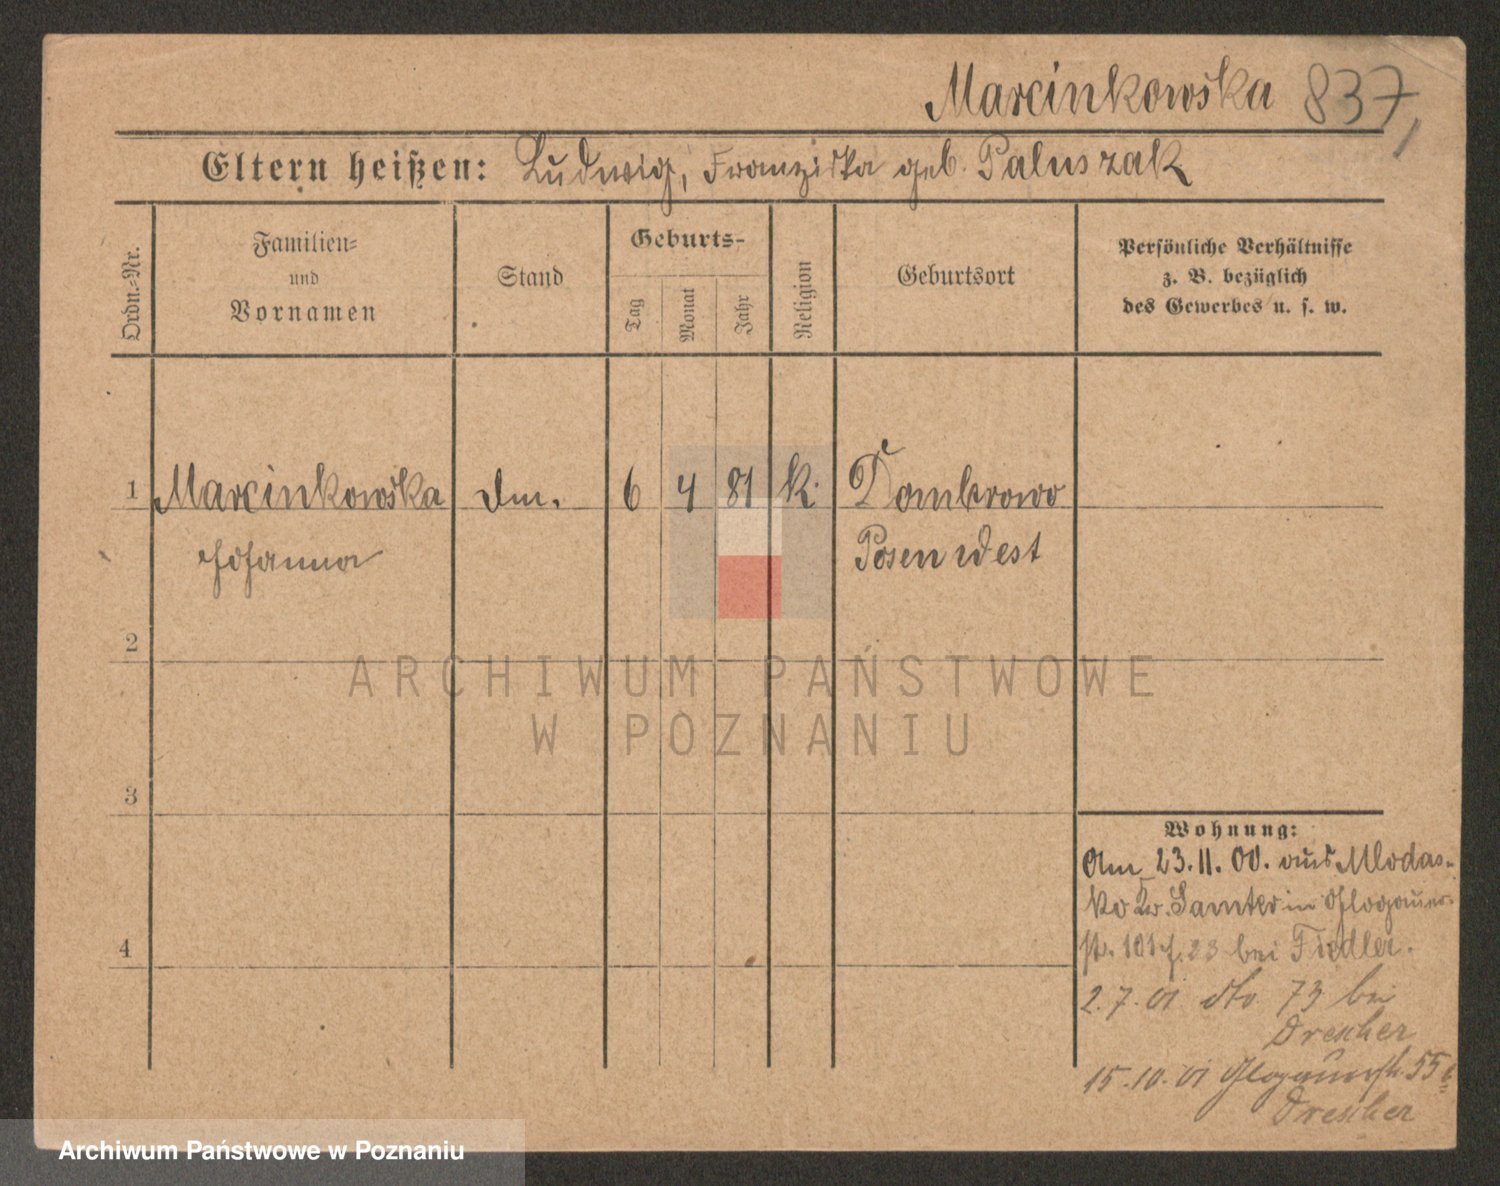 Marcinkowska 837,
Eltern heißen: Ludwig, Franziska geb. Paluszak
Ordn.-Nr.
Familien-
und
Vornamen
Stand
Geburts-
Tag
Monat
Jahr
Religion
Geburtsort
Persönliche Verhältnisse
z. B. bezüglich
des Gewerbes u. s. w.
1 Marcinkowska Dm. 6 4 81 k. Dombrowo
Johanna Posen West
2
3
4
Wohnung:
Am 23.11.00. aus Mlodas-
ko Kr. Samter in Glogauer-
str. 101 23 bei Fiedler.
2.7.01 dto. 73 bei
Drescher
15.10.01 Glogauerstr. 55
Drescher
ARCHIWUM PAŃSTWOWE
W POZNANIU
Archiwum Państwowe w Poznaniu